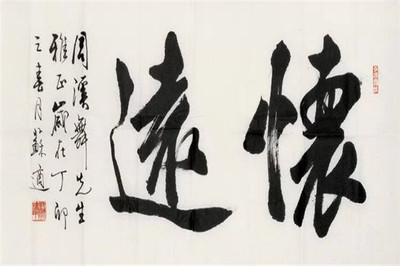 懷遠
周溪舞先生
雅正歲在丁卯
之春月蘇適